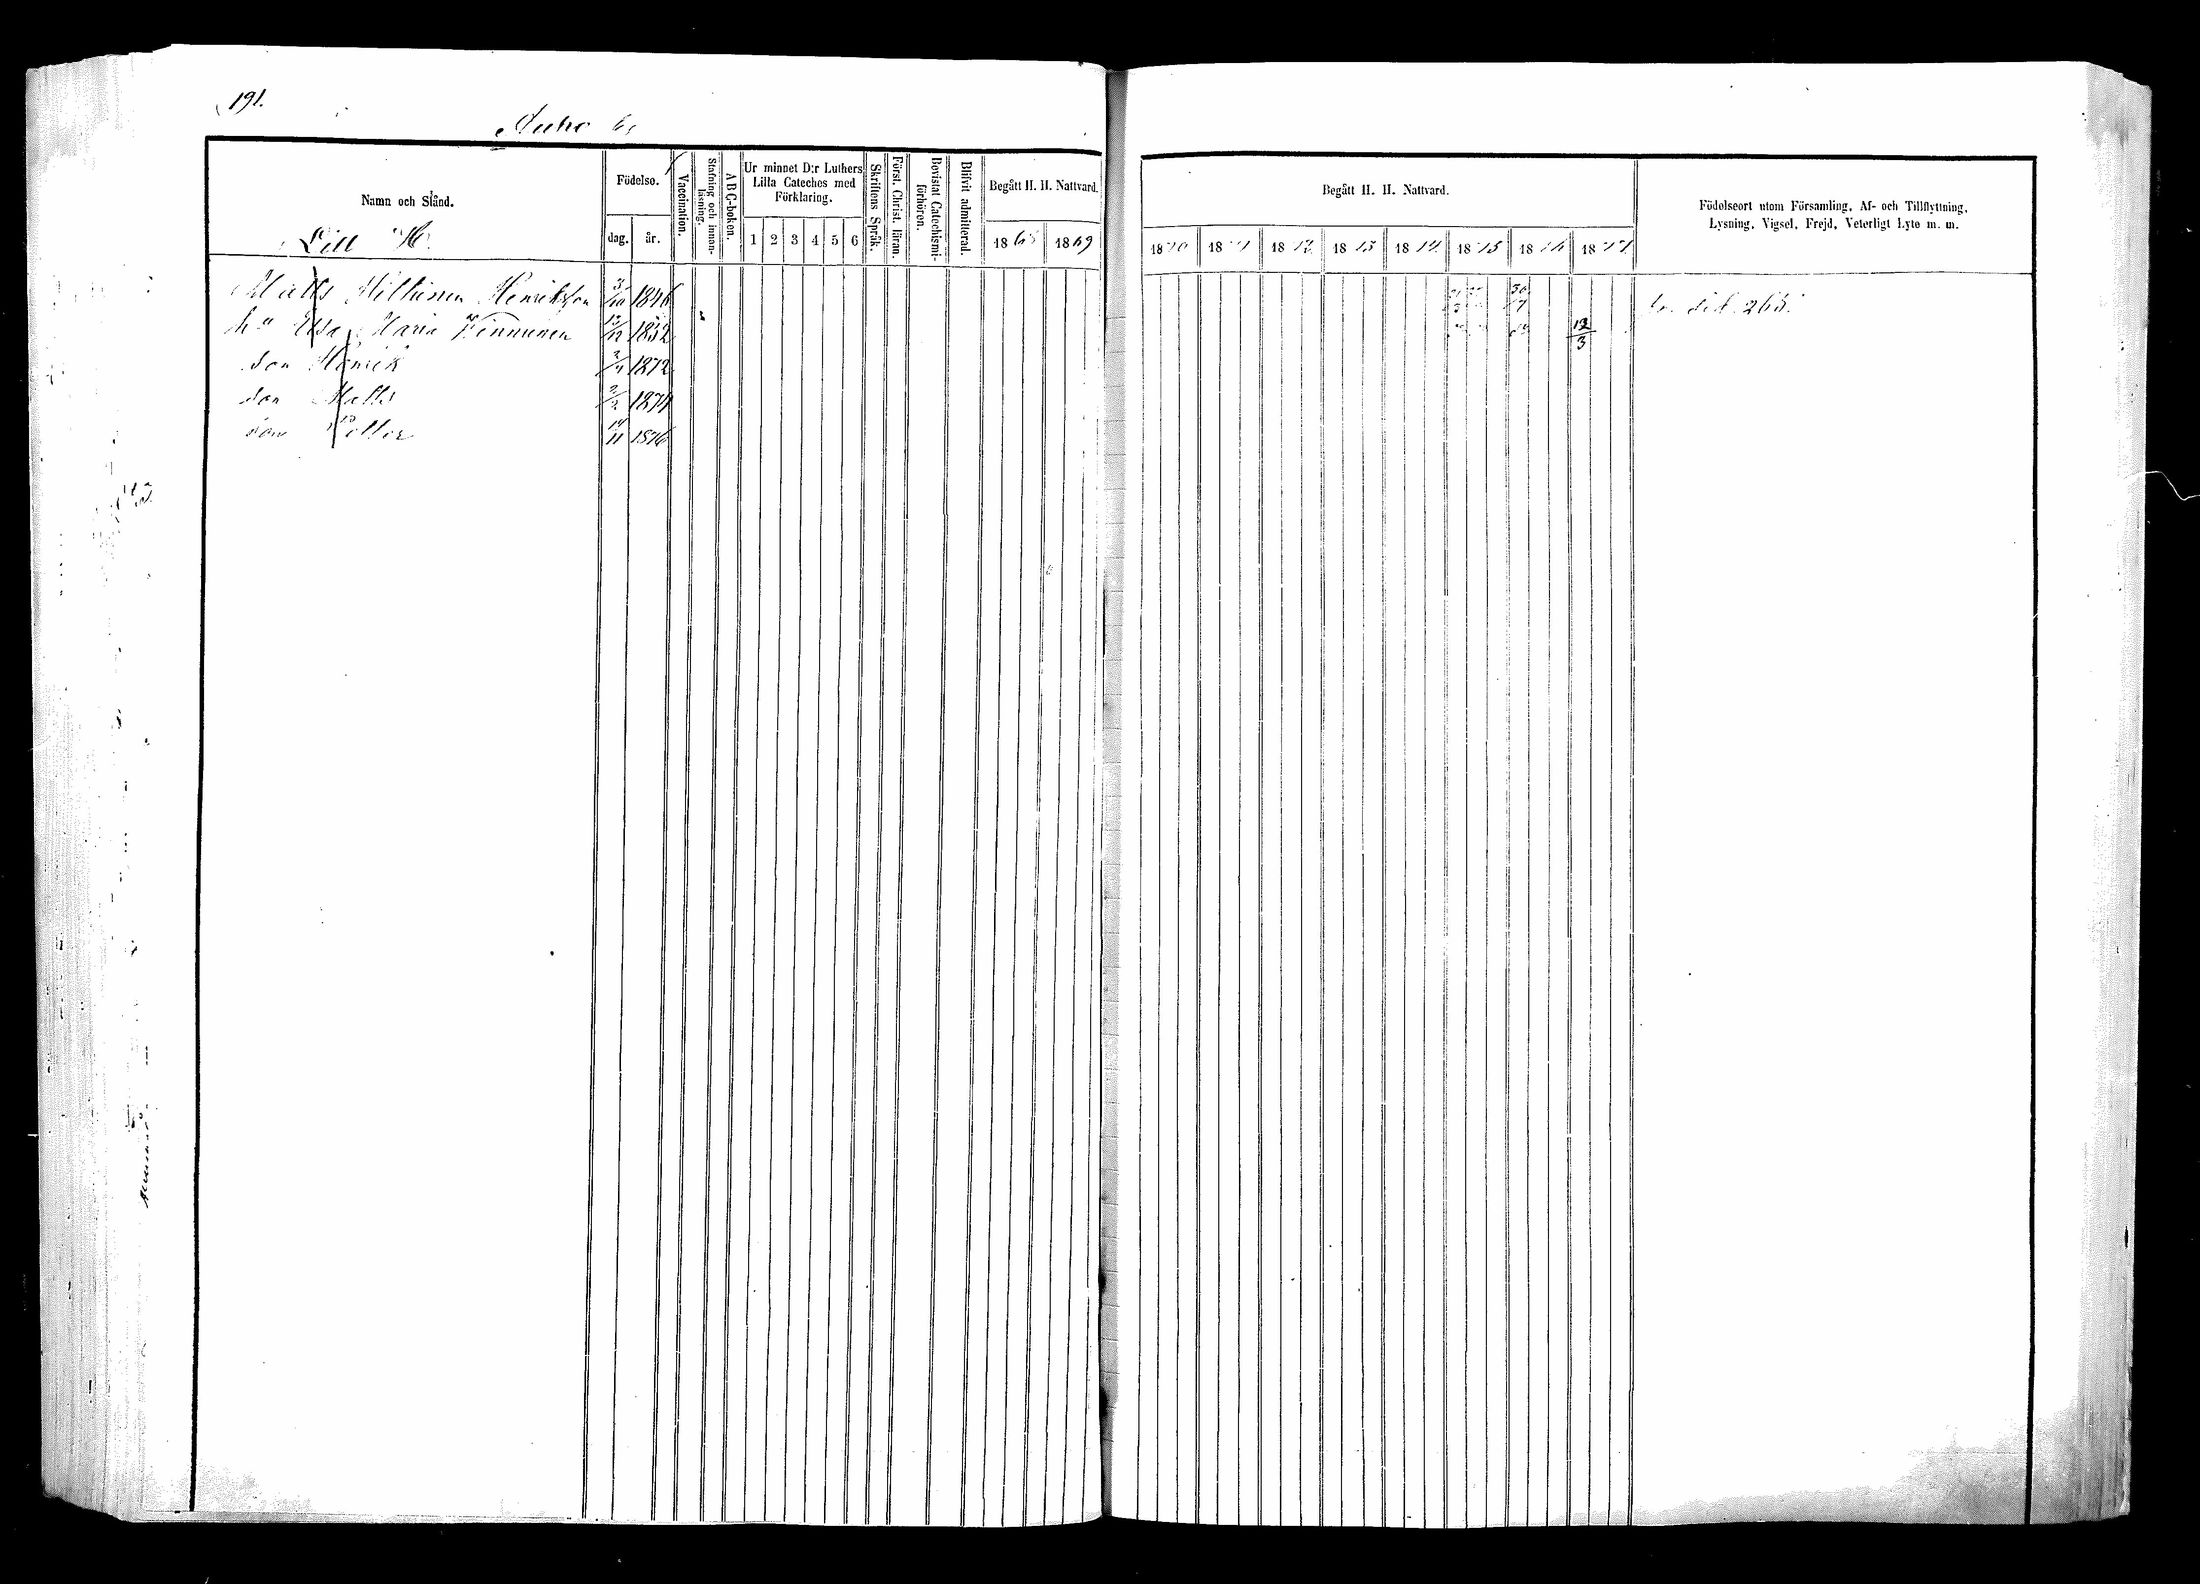 191.
Auho by
Namn och Stånd.
Födelse.
dag. år.
Vaccination.
Stafning och innan-läsning.
ABC-boken.
Ur minnet D:r Luthers
Lilla Cateches med
Förklaring.
1 2 3 4 5 6
Skriftens Språk.
Först. Christ. läran.
Bevistat Catechismi-förhören.
Blifvit admitterad.
Begått H. H. Nattvard.
1868 1869
Begått H. H. Nattvard.
1870 1871 1872 1873 1874 1875 1876 1877
Födelseort utom Församling, Af- och Tillflyttning,
Lysning, Vigsel, Frejd, Veterligt Lyte m. m.
Litt H.
Matts Henriksson 3/10 1846 30/7
hu Maria Finnunen 12/12 1852 12/3
son Henrik 1872
son Matts 2/2 1874
son Petter 14/11 1876
sid. 265.